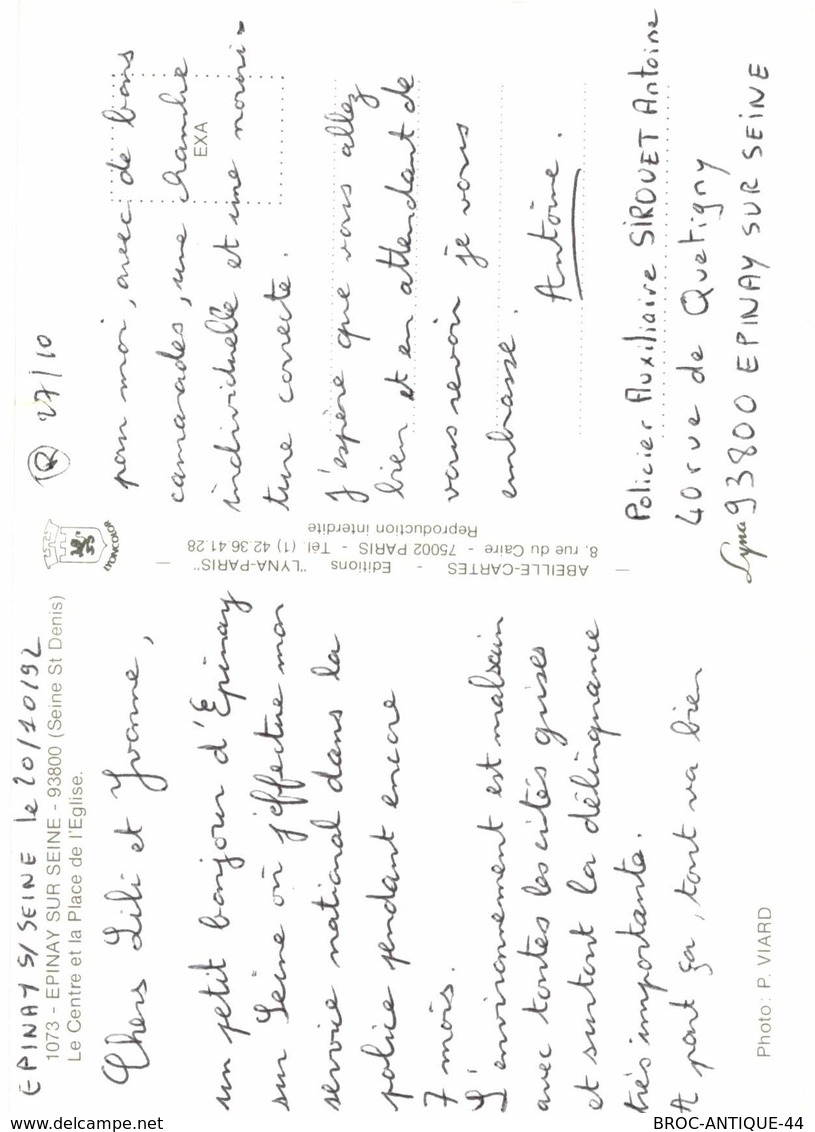 EPINAY S/SEINE le 20/10/92
1073 - EPINAY SUR SEINE - 93800 (Seine St Denis)
Le Centre et la Place de l'Eglise.
Chers Lili et Yvonne,
un petit bonjour d'Epinay
sur Seine où j'effectue mon
service national dans la
police pendant encore
7 mois.
L'environnement est malsain
avec toutes les cités grises
et surtout la délinquance
très importante.
A part ça, tout va bien
Photo : P. VIARD
LYONCOLOR
ABEILLE-CARTES - Editions "LYNA-PARIS"
8, rue du Caire - 75002 PARIS - Tél. (1) 42.36.41.28
Reproduction interdite
Lyna
R 27/10
pour moi, avec de bons
camarades, une chambre
individuelle et une nourri-
ture correcte.
EXA
J'espère que vous allez
bien et en attendant de
vous revoir je vous
embrasse.
Antoine.
Policier Auxiliaire SIROUET Antoine
40 rue de Quetigny
93800 EPINAY SUR SEINE
www.delcampe.net
BROC-ANTIQUE-44